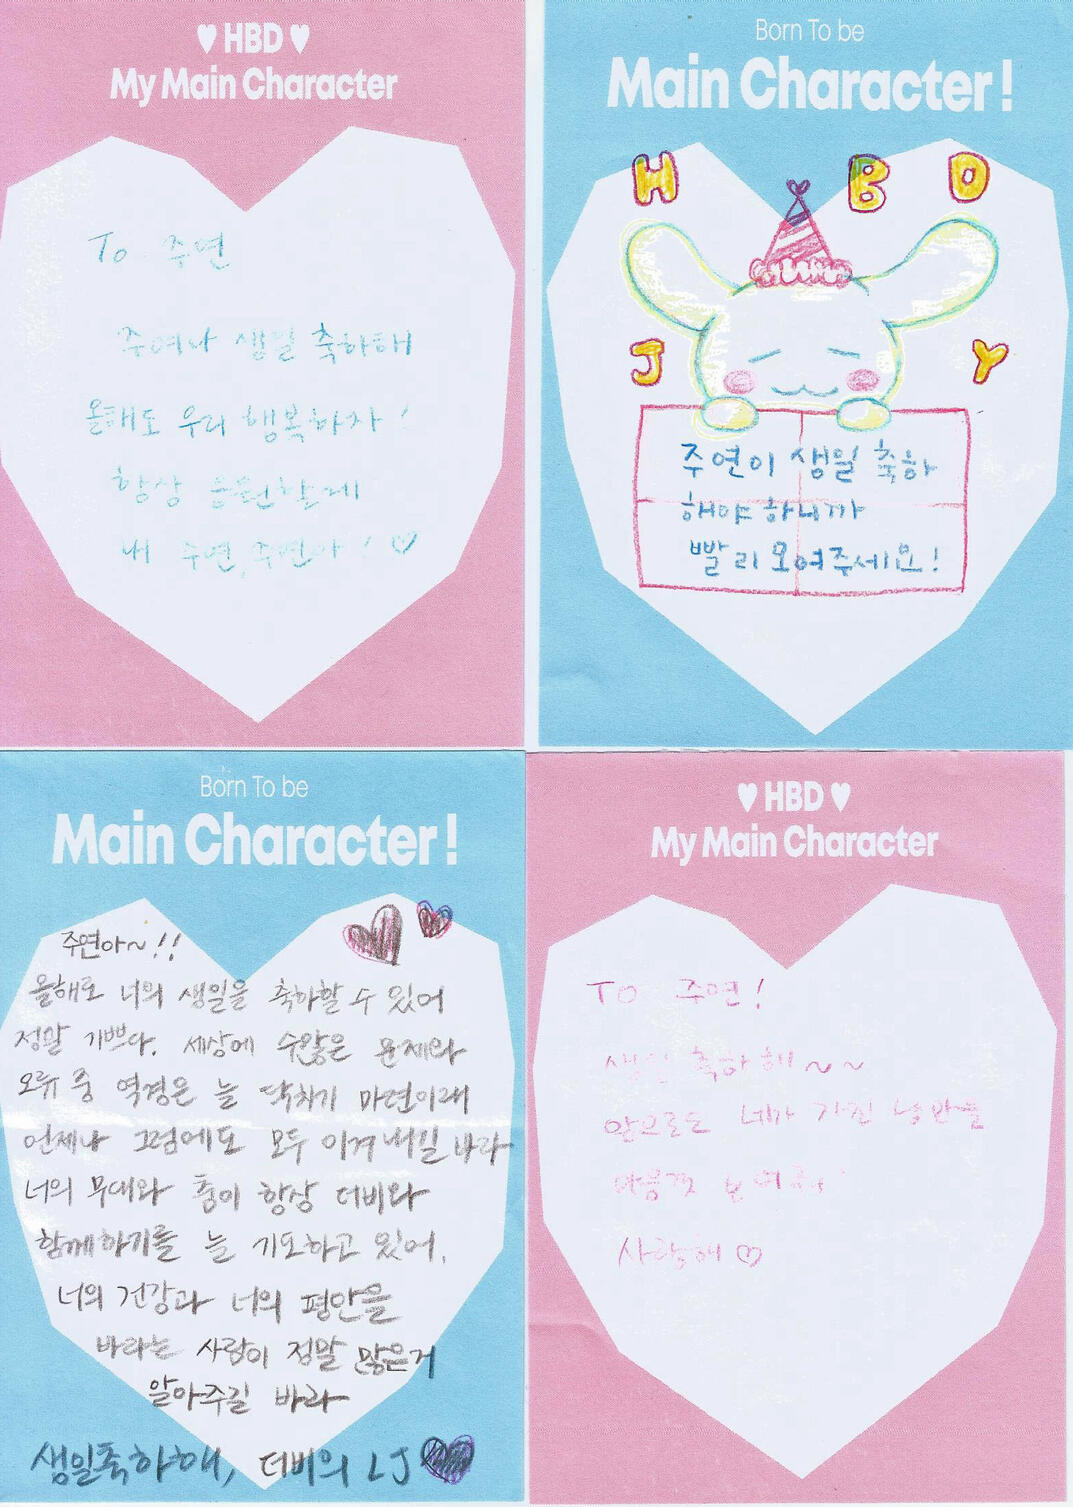 ♥ HBD ♥
My Main Character
To 주연
주여나 생일 축하해
올해도 우리 행복하자!
항상 응원할게
내 주연, 주연아! ♡
Born To be
Main Character!
H B D
J Y
주연이 생일 축하
해야 하니까
빨리 모여주세요!
Born To be
Main Character!
주연아~!!
올해도 너의 생일을 축하할 수 있어
정말 기쁘다. 세상에 수많은 문제와
오류 중 역경은 늘 닥치기 마련이래
언제나 그럼에도 모두 이겨내길 바라
너의 무대와 춤이 항상 더비와
함께하기를 늘 기도하고 있어.
너의 건강과 너의 평안을
바라는 사람이 정말 많은거
알아주길 바라
생일축하해, 더비의 LJ
♥ HBD ♥
My Main Character
TO 주연!
생일 축하해~~
앞으로도 네가 가진 낭만을
마음껏 보여줘
사랑해 ♡